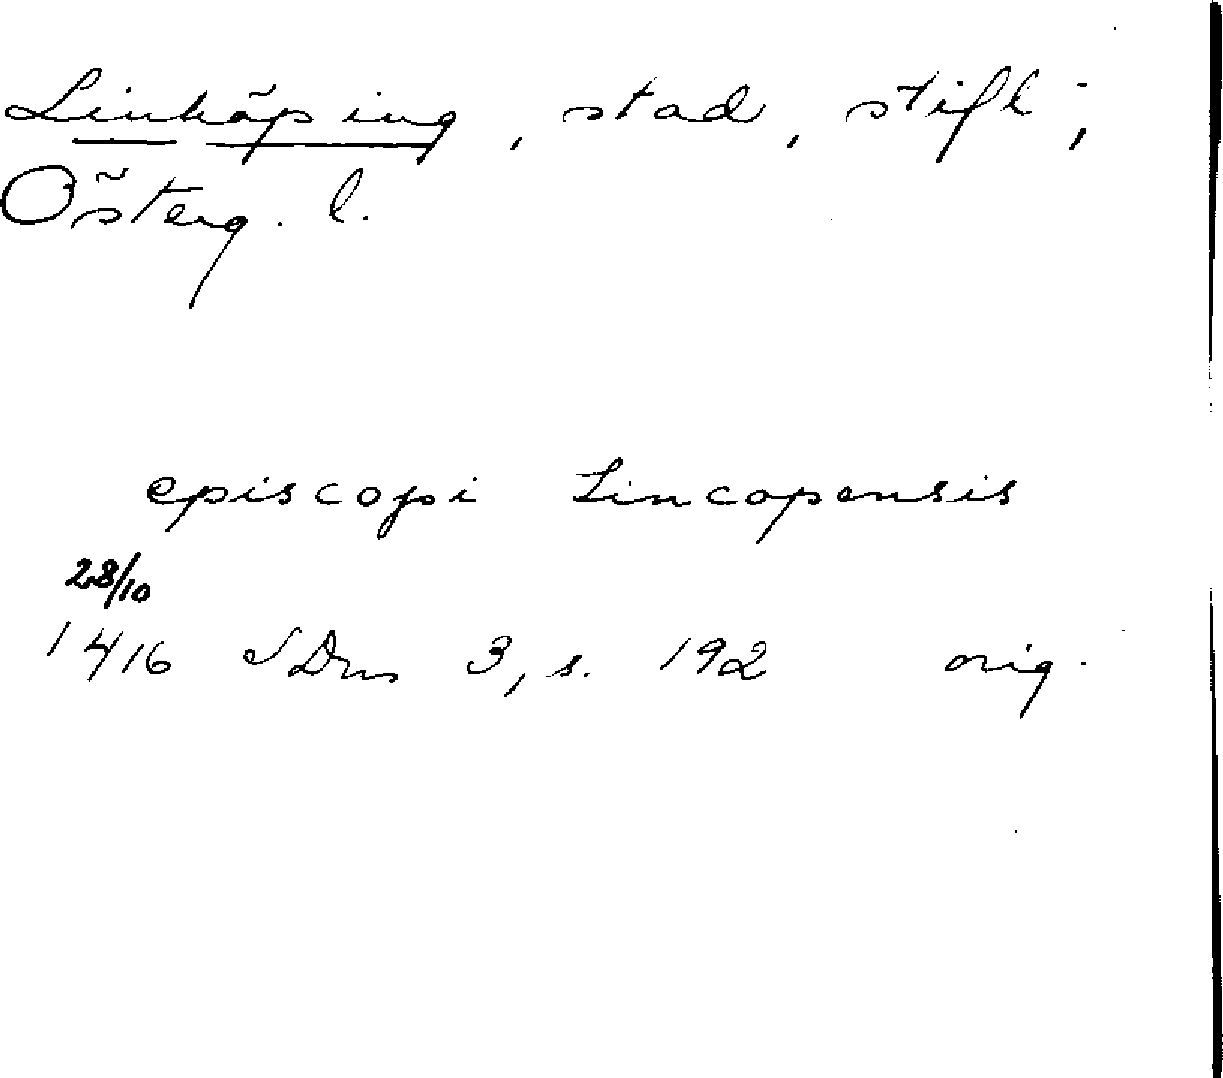 Linköping, stad, stift;
Österg. l.
episcopi Lincopensis
28/10
1416 SDns 3, s. 192 orig.